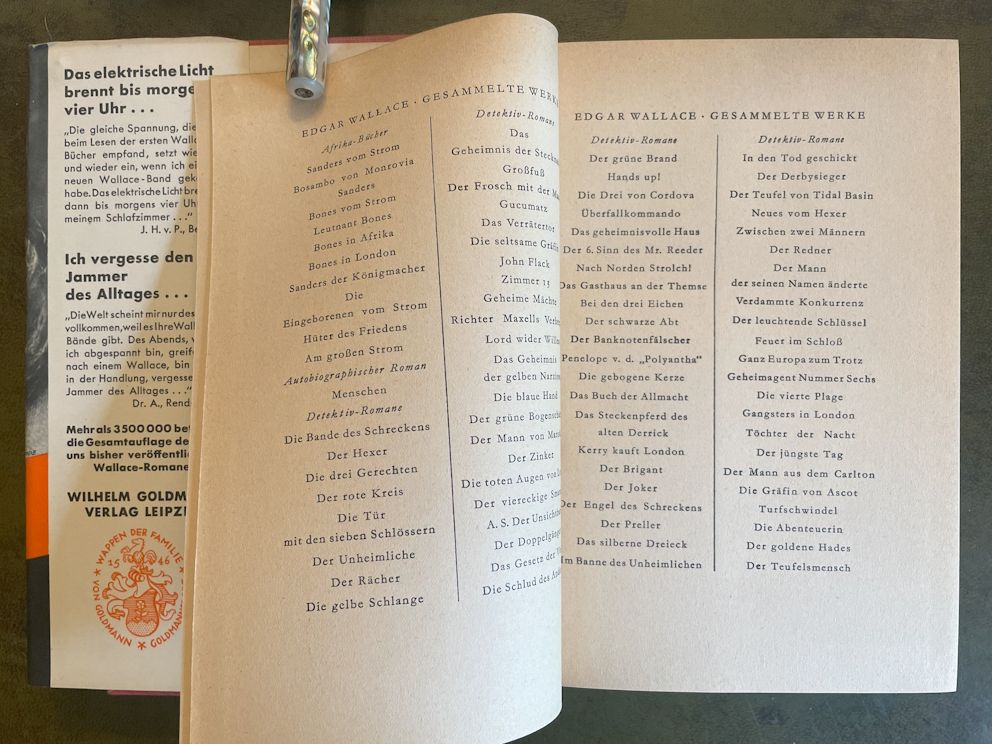 Das elektrische Licht
brennt bis morge
vier Uhr . . .
„Die gleiche Spannung, die
beim Lesen der ersten Walla
Bücher empfand, setzt wie
und wieder ein, wenn ich ei
neuen Wallace-Band gek
habe. Das elektrische Licht bre
dann bis morgens vier Uh
meinem Schlafzimmer . . .“
J. H. v. P., Be
Ich vergesse den
Jammer
des Alltages . . .
„Die Welt scheint mir nur des
vollkommen, weil es Ihre Wall
Bände gibt. Des Abends, w
ich abgespannt bin, greife
nach einem Wallace, bin
in der Handlung, vergesse
Jammer des Alltages . . .“
Dr. A., Rend
Mehr als 3500000 be
die Gesamtauflage de
uns bisher veröffentli
Wallace-Romane
WILHELM GOLDM
VERLAG LEIPZI
WAPPEN DER FAMILIE
1546
VON GOLDMANN GOLDMANN
EDGAR WALLACE · GESAMMELTE WERKE
Afrika-Bücher
Sanders vom Strom
Bosambo von Monrovia
Sanders
Bones vom Strom
Leutnant Bones
Bones in Afrika
Bones in London
Sanders der Königmacher
Die
Eingeborenen vom Strom
Hüter des Friedens
Am großen Strom
Autobiographischer Roman
Menschen
Detektiv-Romane
Die Bande des Schreckens
Der Hexer
Die drei Gerechten
Der rote Kreis
Die Tür
mit den sieben Schlössern
Der Unheimliche
Der Rächer
Die gelbe Schlange
Detektiv-Romane
Das
Geheimnis der Steckn
Großfuß
Der Frosch mit der Ma
Gucumatz
Das Verrätertor
Die seltsame Gräfin
John Flack
Zimmer 13
Geheime Mächte
Richter Maxells Verbre
Lord wider Willen
Das Geheimnis
der gelben Narzissen
Die blaue Hand
Der grüne Bogenschü
Der Mann von Maro
Der Zinker
Die toten Augen von Lo
Der viereckige Sma
A. S. Der Unsichtba
Der Doppelgänge
Das Gesetz der Vi
Die Schuld des And
EDGAR WALLACE · GESAMMELTE WERKE
Detektiv-Romane
Der grüne Brand
Hands up!
Die Drei von Cordova
Überfallkommando
Das geheimnisvolle Haus
Der 6. Sinn des Mr. Reeder
Nach Norden Strolch!
Das Gasthaus an der Themse
Bei den drei Eichen
Der schwarze Abt
Der Banknotenfälscher
Penelope v. d. „Polyantha“
Die gebogene Kerze
Das Buch der Allmacht
Das Steckenpferd des
alten Derrick
Kerry kauft London
Der Brigant
Der Joker
Der Engel des Schreckens
Der Preller
Das silberne Dreieck
Im Banne des Unheimlichen
Detektiv-Romane
In den Tod geschickt
Der Derbysieger
Der Teufel von Tidal Basin
Neues vom Hexer
Zwischen zwei Männern
Der Redner
Der Mann
der seinen Namen änderte
Verdammte Konkurrenz
Der leuchtende Schlüssel
Feuer im Schloß
Ganz Europa zum Trotz
Geheimagent Nummer Sechs
Die vierte Plage
Gangsters in London
Töchter der Nacht
Der jüngste Tag
Der Mann aus dem Carlton
Die Gräfin von Ascot
Turfschwindel
Die Abenteuerin
Der goldene Hades
Der Teufelsmensch